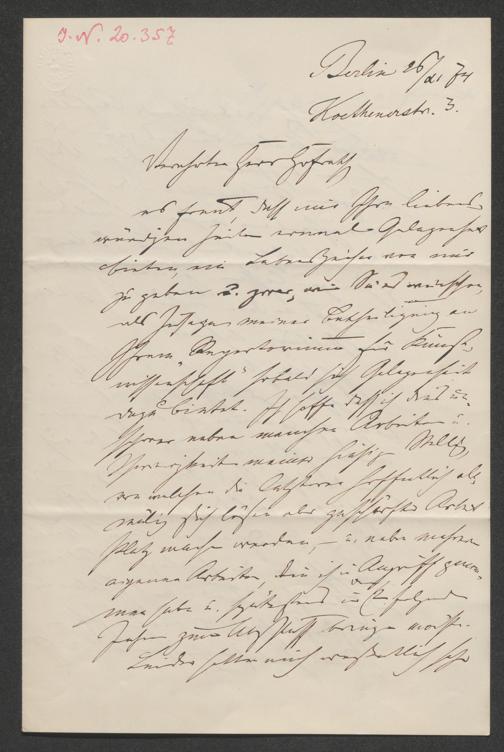 J. N. 20.357
Berlin 26/XI 74
Koethenerstr. 3.
Verehrter Herr Hofrath
es freut, daß mir Ihre liebens-
würdigen Zeilen einmal Gelegenheit
bieten, ein Lebenszeichen von mir
zu geben u. zwar, wie Sie es wünschen,
als Zusage meiner Betheiligung an
Ihrem "Repertorium für Kunst-
wissenschaft" sobald sich Gelegenheit
dazu bietet. Ich hoffe daß ich dies
neben manchen Arbeiten u.
meiner Stellg,
von welchen die letzteren hoffentlich all-
mälig sich lösen oder
Platz machen werden, – u. neben meinen
eigenen Arbeiten, die ich in Angriff genom-
men habe u. spätestens im folgenden
Jahre zum Abschluß bringen möchte.
Leider hatte mich